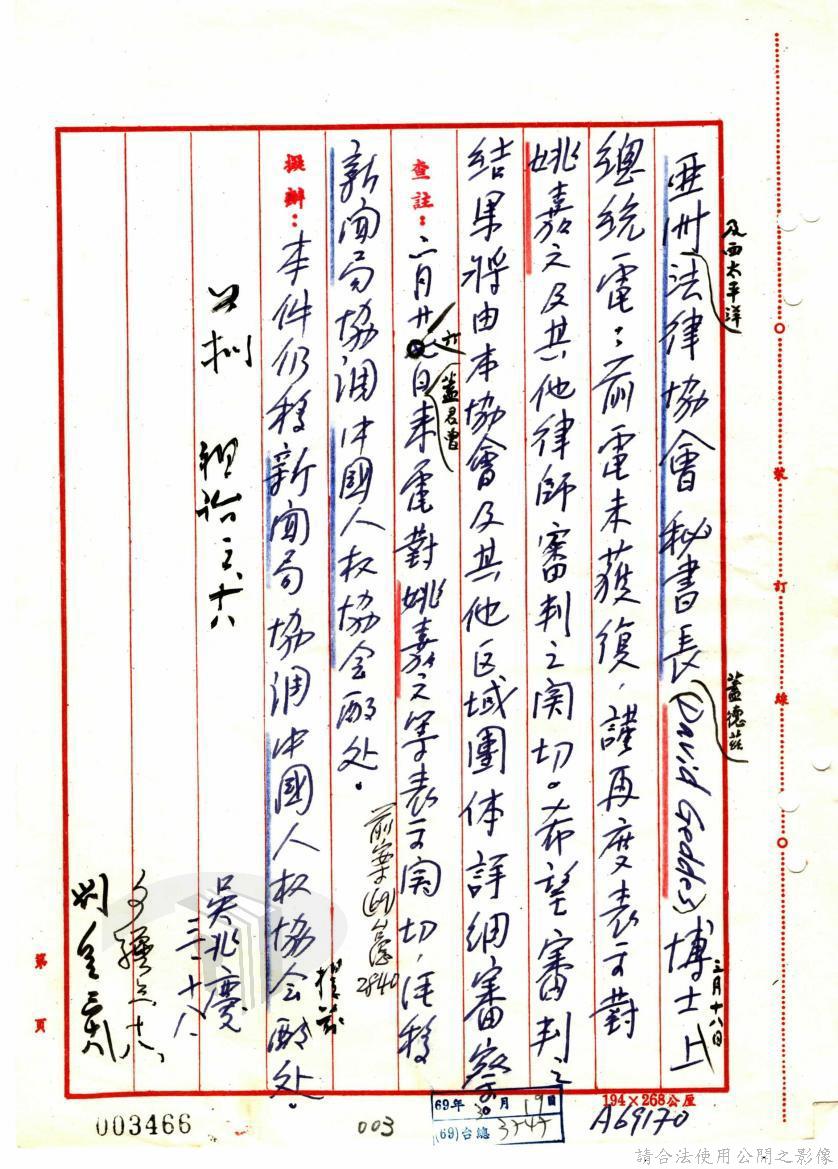 亞洲法律協會秘書長(David Geddes)博士上
及西太平洋
蓋德茲
三月十八日
總統電：前電未獲復，謹再度表示對
姚嘉文及其他律師審判之関切。希望審判之
結果將由本協會及其他区域團体詳細審察
查註：二月廿日來電對姚嘉文等表示関切，経移
蓋君曾
新聞局協調中國人权協会酌处。
前案(69)台總2840
擬辦：本件仍移新聞局協調中國人权協会酌处。
吳兆慶
三、十八
第 頁
裝 訂 線
194×268公厘
A69170
69年 月19日
(69)台總
003
003466
請合法使用公開之影像